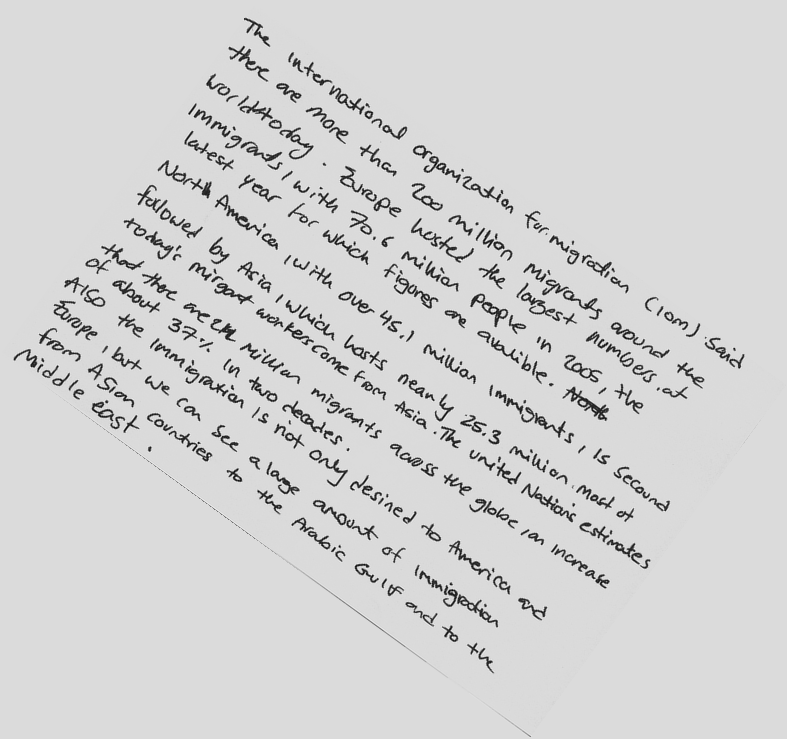 The international organization for migration (IOM) Said
there are more than 200 million migrants around the
world today. Europe hosted the largest numbers of
immigrants, with 70.6 million people in 2005, the
latest year for which figures are avalible.
North America, with over 45.1 million immigrants, is secound
followed by Asia, which hosts nearly 25.3 million. Most of
today's mirgant workers come from Asia. The united Nations estimates
that there are 214 million migrants across the globe, an increase
of about 37% in two decades.
Also the immigration is not only desined to America and
Europe, but we can see a large amount of immigration
from Asian countries to the Arabic Gulf and to the
Middle east.